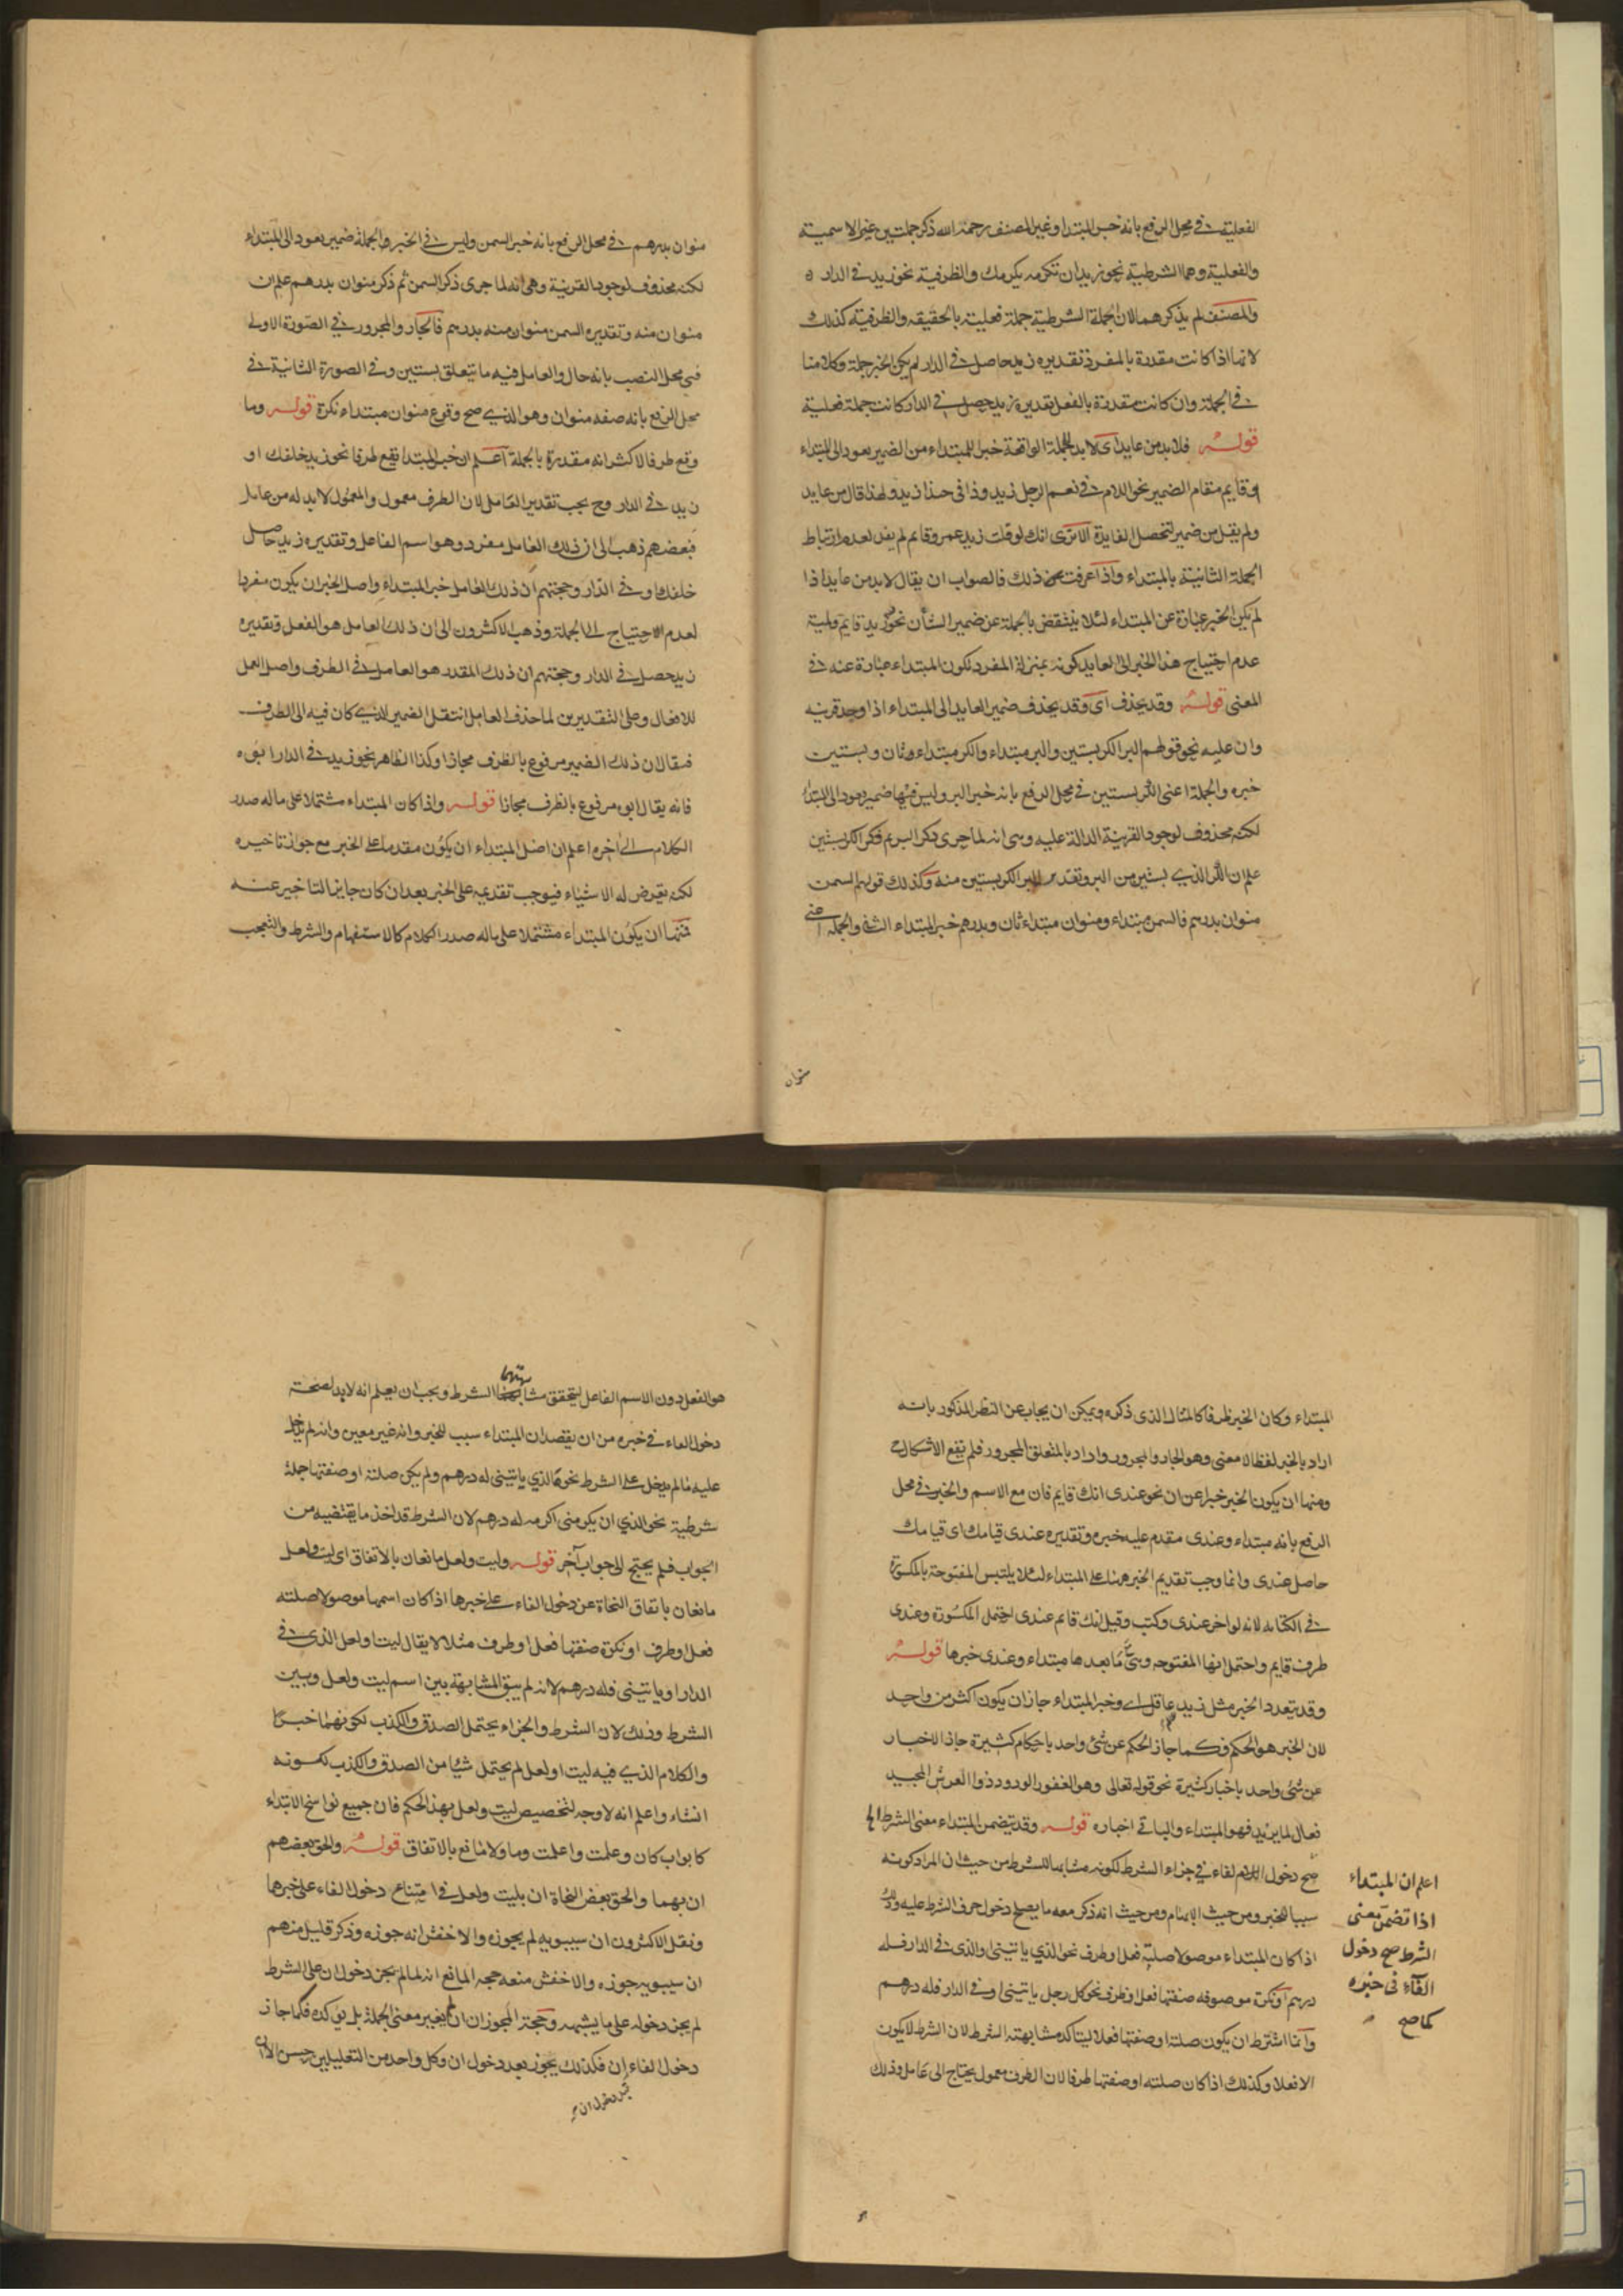 الفعلية في محل الرفع بانه خبر المبتدا وغير المصنف رحمة الله ذكر جملتين غير الاسمية
والفعلية وهما الشرطية نحو زيد ان تكرمه يكرمك والظرفية نحو زيد في الدار
والمصنف لم يذكرهما لان الجملة الشرطية جملة فعلية بالحقيقه والظرفية كذلك
لانها اذا كانت مقدرة بالمفرد تقديره زيد حاصل في الدار لم يكن الخبر جملة وكلامنا
في الجملة وان كانت مقدرة بالفعل تقديره زيد حصل في الدار كانت جملة فعلية
قوله فلا بد من عايد اى لا بد للجملة الواقعة خبر المبتداء من الضمير يعود الى المبتداء
او قايم مقام الضمير نحو اللام في نعم الرجل زيد وذا في حبذا زيد ولهذا قال من عايد
ولم يقل من ضمير لتحصل الفايدة الا ترى انك لو قلت زيد عمرو قايم لم يفد لعدم ارتباط
الجملة الثانية بالمبتداء واذا عرفت ذلك فالصواب ان يقال لا بد من عايد اذا
لم يكن الخبر عبارة عن المبتداء لئلا ينتقض بالجملة عن ضمير الشأن نحو زيد قايم وعلية
عدم احتياج هذا الخبر الى العايد كونه بمنزلة المفرد لكون المبتداء عبارة عنه في
المعنى قوله وقد يحذف اى وقد يحذف ضمير العايد الى المبتداء اذا وجد قرينه
وان عليه نحو قولهم البر الكر بستين والبر مبتداء والكر مبتداء وثان وبستين
خبره والجملة اعنى الكر بستين في محل الرفع بانه خبر البر وليس فيها ضمير يعود الى المبتدا
لكنه محذوف لوجود القرينة الدالة عليه وهي انه لما جرى ذكر البر ثم ذكر الكر بستين
علم ان الكر الذي بستين من البر وتقديره البر الكر بستين منه وكذلك قولهم السمن
منوان بدرهم فالسمن مبتداء ومنوان مبتداء ثان وبدرهم خبر المبتداء الثاني والجملة اعنى
منوان
منوان بدرهم في محل الرفع بانه خبر السمن وليس في الخبر والجملة ضمير يعود الى المبتداء
لكنه محذوف لوجود القرنية وهي انه لما جرى ذكر السمن ثم ذكر منوان بدرهم علم ان
منوان منه وتقديره السمن منوان منه بدرهم فالجار والمجرور في الصورة الاولى
في محل النصب بانه حال والعامل فيه ما يتعلق بستين وفي الصورة الثانية في
محل الرفع بانه صفه منوان وهو الذي صح وقوع منوان مبتداء نكرة قوله وما
وقع ظرفا فالاكثر انه مقدرة بالجملة اعلم ان خبر المبتدا يقع ظرفا نحو زيد خلفك او
زيد في الدار وح يجب تقدير العامل لان الظرف معمول والمعمول لا بد له من عامل
فبعضهم ذهب الى ان ذلك العامل مفرد وهو اسم الفاعل وتقديره زيد حاصل
خلفك او في الدار وحجتهم ان ذلك العامل خبر المبتداء واصل الخبر ان يكون مفردا
لعدم الاحتياج الى الجملة وذهب الاكثرون الى ان ذلك العامل هو الفعل وتقديره
زيد حصل في الدار وحجتهم ان ذلك المقدر هو العامل في الظرف واصل العمل
للافعال وعلى التقديرين لما حذف العامل انتقل الضمير الذي كان فيه الى الظرف
فيقال ان ذلك الضمير مرفوع بالظرف مجازا وكذا الظاهر نحو زيد في الدار ابوه
فانه يقال ابوه مرفوع بالظرف مجازا قوله واذا كان المبتداء مشتملا على ما له صدر
الكلام الى اخره اعلم ان اصل المبتداء ان يكون مقدما على الخبر مع جواز تاخيره
لكنه يعرض له الاشياء فيوجب تقديمه على الخبر بعد ان كان جايز التاخير عنه
فمنها ان يكون المبتداء مشتملا على ما له صدر الكلام كالاستفهام والشرط والتعجب
المبتداء وكان الخبر ظرفا كالمثال الذى ذكره ويمكن ان يجاب عن النظر المذكور بانه
اراد بالخبر لفظا لا معنى وهو الجار والمجرور واراد بالمتعلق المجرور فلم يقع الاشكال
ومنها ان يكون الخبر خبرا عن ان نحو عندى انك قايم فان مع الاسم والخبر في محل
الرفع بانه مبتداء وعندى مقدم عليه خبره وتقديره عندى قيامك اى قيامك
حاصل عندى وانما وجب تقديم الخبر هنا على المبتداء لئلا يلتبس المفتوحة بالمكسورة
في الكتابه لانه لو اخر عندى وكتب وقيل انك قائم عندى احتمل المكسورة وعندى
ظرف قايم واحتمل انها المفتوحه وهي مما بعدها مبتداء وعندى خبرها قوله
وقد يتعدد الخبر مثل زيد عاقل اى وخبر المبتداء جاز ان يكون اكثر من واحد
لان الخبر هو الحكم فكما جاز الحكم عن شئ واحد باحكام كثيرة جاز الاخبار
عن شئ واحد باخبار كثيرة نحو قوله تعالى وهو الغفور الودود ذوا العرش المجيد
فعال لما يريد فهو المبتداء والباقي اخباره قوله وقد يتضمن المبتداء معنى الشرط الخ
صح دخول الفاء في جزاء الشرط لكونه مشابها للشرط من حيث ان المراد كونه
سببا للخبر ومن حيث الابهام ومن حيث انه ذكر معه ما يصلح دخول حرف الشرط عليه وذلك
اذا كان المبتداء موصولا صلته فعل او ظرف نحو الذي ياتيني او الذى في الدار فله
درهم او نكرة موصوفه صفتها فعل او ظرف نحو كل رجل ياتينى او في الدار فله درهم
وانما اشترط ان يكون صلته او صفتها فعلا ليتاكد مشابهته الشرط لان الشرط لا يكون
الا فعلا وكذلك اذا كان صلته او صفتها ظرفا لان الظرف معمول يحتاج الى عامل وذلك
اعلم ان المبتداء
اذا تضمن معنى
الشرط صح دخول
الفاء في خبره
كما صح
هو الفعل دون الاسم الفاعل ليتحقق مشابهتها الشرط ويجب ان يعلم انه لا بد لصحة
دخول الفاء في خبره من ان يقصد ان المبتداء سبب للخبر وانه غير معين وانه لم يدخل
عليه ما لم يدخل على الشرط نحو ما الذي ياتيني له درهم ولم يكن صلته او صفتها جملة
شرطية نحو الذي ان يكرمنى اكرمه له درهم لان الشرط قد اخذ ما يقتضيه من
الجواب فلم يحتج الى جواب آخر قوله وليت ولعل مانعان بالاتفاق اى ليت ولعل
مانعان باتفاق النحاة عن دخول الفاء على خبرها اذا كان اسمها موصولا صلته
فعل او ظرف او نكرة صفتها فعل او ظرف مثلا لا يقال ليت او لعل الذى في
الدار او ياتيني فله درهم لانه لم يبق المشابهة بين اسم ليت ولعل وبين
الشرط وذلك لان الشرط والجزاء يحتمل الصدق والكذب لكونهما خبرا
والكلام الذي فيه ليت او لعل لم يحتمل شيئا من الصدق والكذب لكونه
انشاء واعلم انه لا وجه لتخصيص ليت ولعل بهذا الحكم فان جميع نواسخ الابتداء
كابواب كان وعلمت واعلمت وما ولا مانع بالاتفاق قوله والحق بعضهم
ان بهما والحق بعض النحاة ان بليت ولعل في امتناع دخول الفاء على خبرها
ونقل الاكثرون ان سيبويه لم يجوزه والاخفش انه جوزه وذكر قليل منهم
ان سيبويه جوزه والاخفش منعه حجه المانع انه لما لم يجز دخول ان على الشرط
لم يجز دخوله على ما يشبهه وحجة المجوز ان ان لم يغير معنى الجملة بل يؤكده فكما جاز
دخول الفاء ان فكذلك يجوز بعد دخول ان وكل واحد من التعليلين حسن
قبل دخول ان